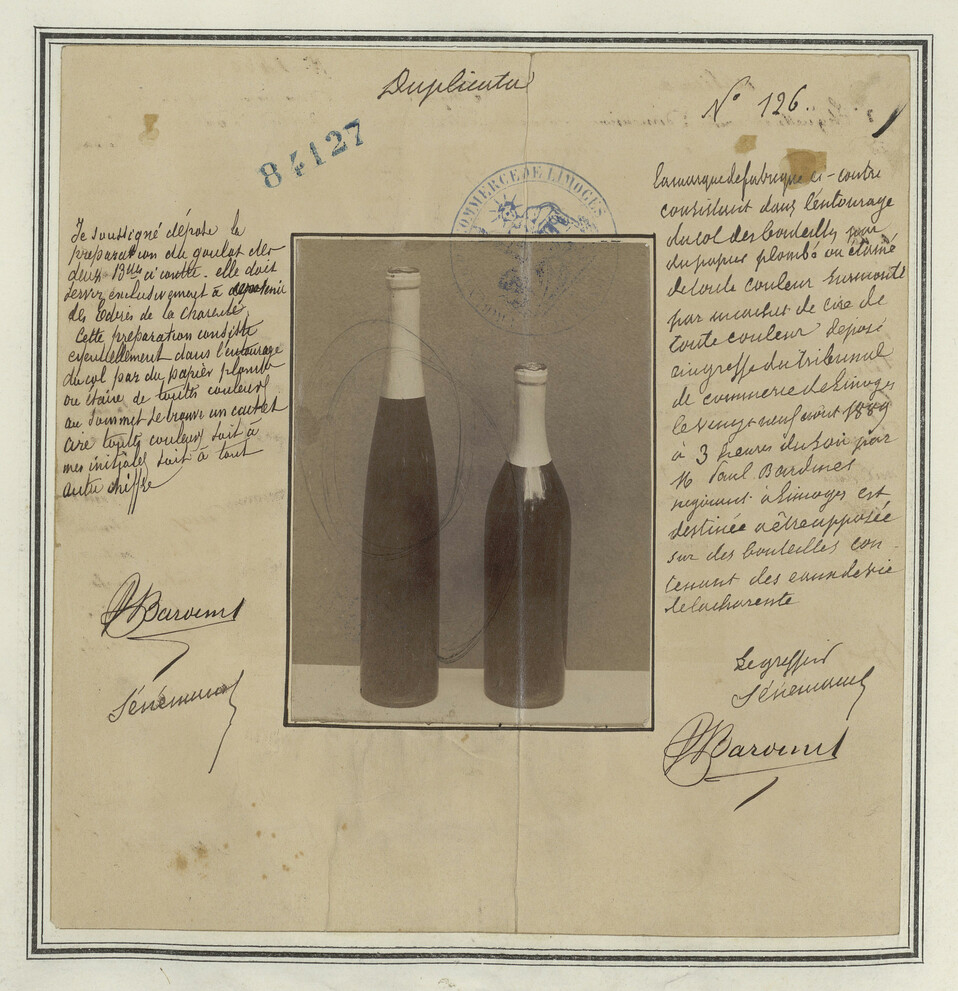 Duplicata
N° 126.
84127
COMMERCE DE LIMOGES
Je soussigné dépose la
préparation du goulot des
deux Blles ci contre. elle doit
servir exclusivement à
des de la charente
Cette préparation consiste
essentiellement dans l'entourage
du col par du papier plombé
ou étaire de toutes couleurs
au sommet se trouve un cachet
cire toutes couleurs soit à
mes initiales soit à tout
autre chiffre
Sénemaud
la marque de fabrique ci-contre
consistant dans l'entourage
du col des bouteilles par
du papier plombé ou étamé
de toute couleur surmonté
par un cachet de cire de
toute couleur déposé
au greffe du tribunal
de commerce de Limoges
le vingt neuf août 1889
à 3 heures du soir par
M Paul Bardinet
négociant à Limoges est
destinée a être apposée
sur des bouteilles con-
tenant des eaux de vie
de la charente
Le greffier
Sénemaud
PBardinet